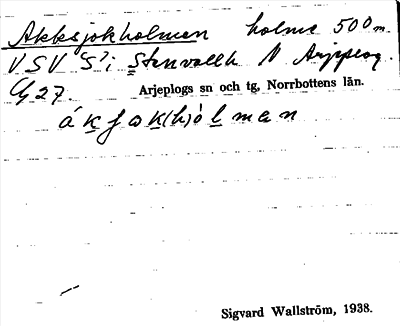 Akksjokholmen holme 500 m.
VSV "S" i Stenvallh N Arjeplog.
Cg 27.
Arjeplogs sn och tg, Norrbottens län.
áḵʃoḵ(h)òlman
Sigvard Wallström, 1938.